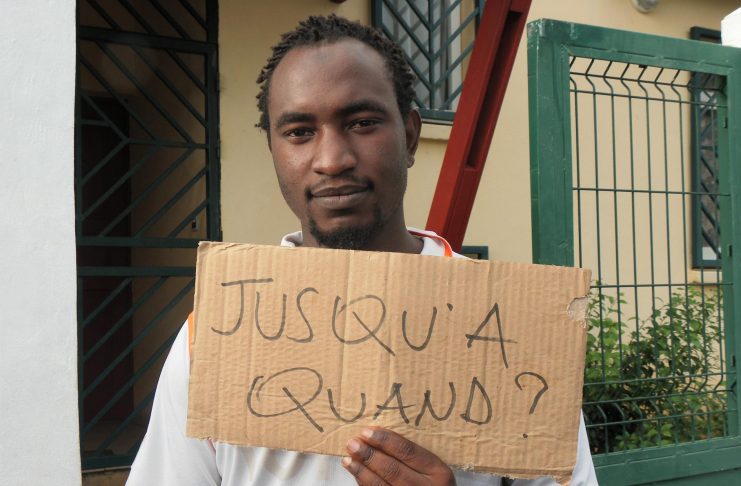 JUSQU'A
QUAND ?